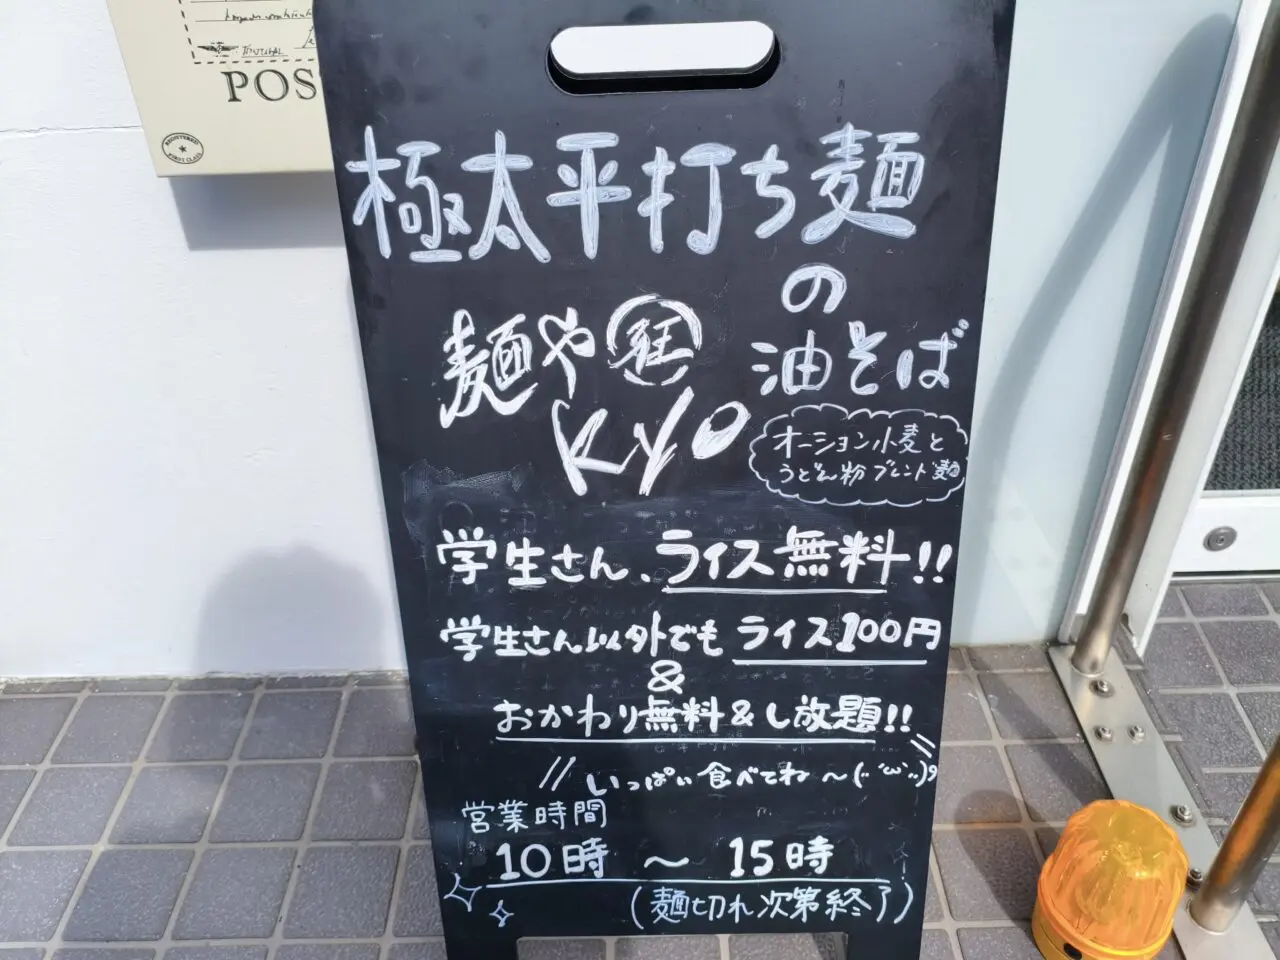 POS
極太平打ち麺
の
油そば
麺や狂
KYO
オーション小麦と
うどん粉ブレンド麺
学生さん、ライス無料!!
学生さん以外でもライス100円
&
おかわり無料&し放題!!
// いっぱい食べてね～(..´ω`..)9
営業時間
10時 ～ 15時
(麺切れ次第終了)